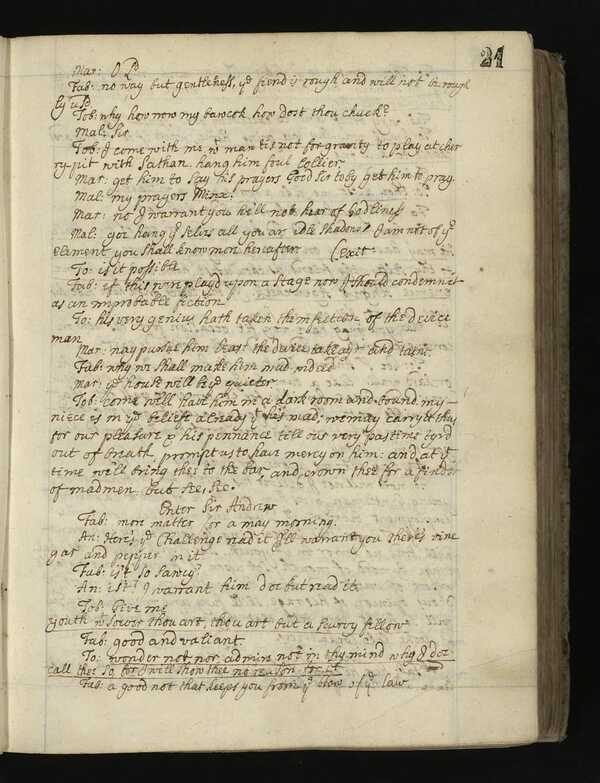 21
Mar: O Ld
Fab: no way but gentleness, ye fiend is rough and will not be rough
ly usd
Tob: why how now my bawcok how dost thou chuck?
Mal: Sir
Tob: I come with me, wt man tis not for gravity to play at cher
ry-pit with Sathan. hang him foul Collier
Mar: get him to say his prayers Good Sir toby get him to pray.
Mal: my prayers Minx!
Mar: no I warrant you he'll not hear of Godliness
Mal: goe hang yr selvs all you are idle shadows I am not of yr
element you shall know more hereafter (Exit
To: is it possible
Fab: if this were playd upon a stage now I should condemn it
as an improbable fiction
To: his very genius hath taken the infection of the device
man
Mar: nay pursue him least the device take ayr and taint.
Fab: why we shall make him mad indeed
Mar: ye house will be ye quieter
Tob: come will have him in a dark room and bound. my
niece is in ye beliefe already yt he's mad; we may carry it thus
for our pleasure & his pennance till our very pastime tyrd
out of breath, prompt us to have mercy on him: and at yt
time will bring thee to the bar, and crown thee for a finder
of madmen but see, see.
Enter Sir Andrew
Fab: more matter for a may morning.
An: Here's ye Challenge read it I'll warrant you there's vine
gar and pepper in it
Fab: ist so sawcy?
An: ist? I warrant him doe but read it.
Tob: Give me
youth wtsoever thou art, thou art but a scurvy fellow
Fab: good and valiant
To: wonder not, nor admire not in thy mind why I doe
call thee so, for I will show thee no reason for it
Fab: a good not that keeps you from ye blow of ye law